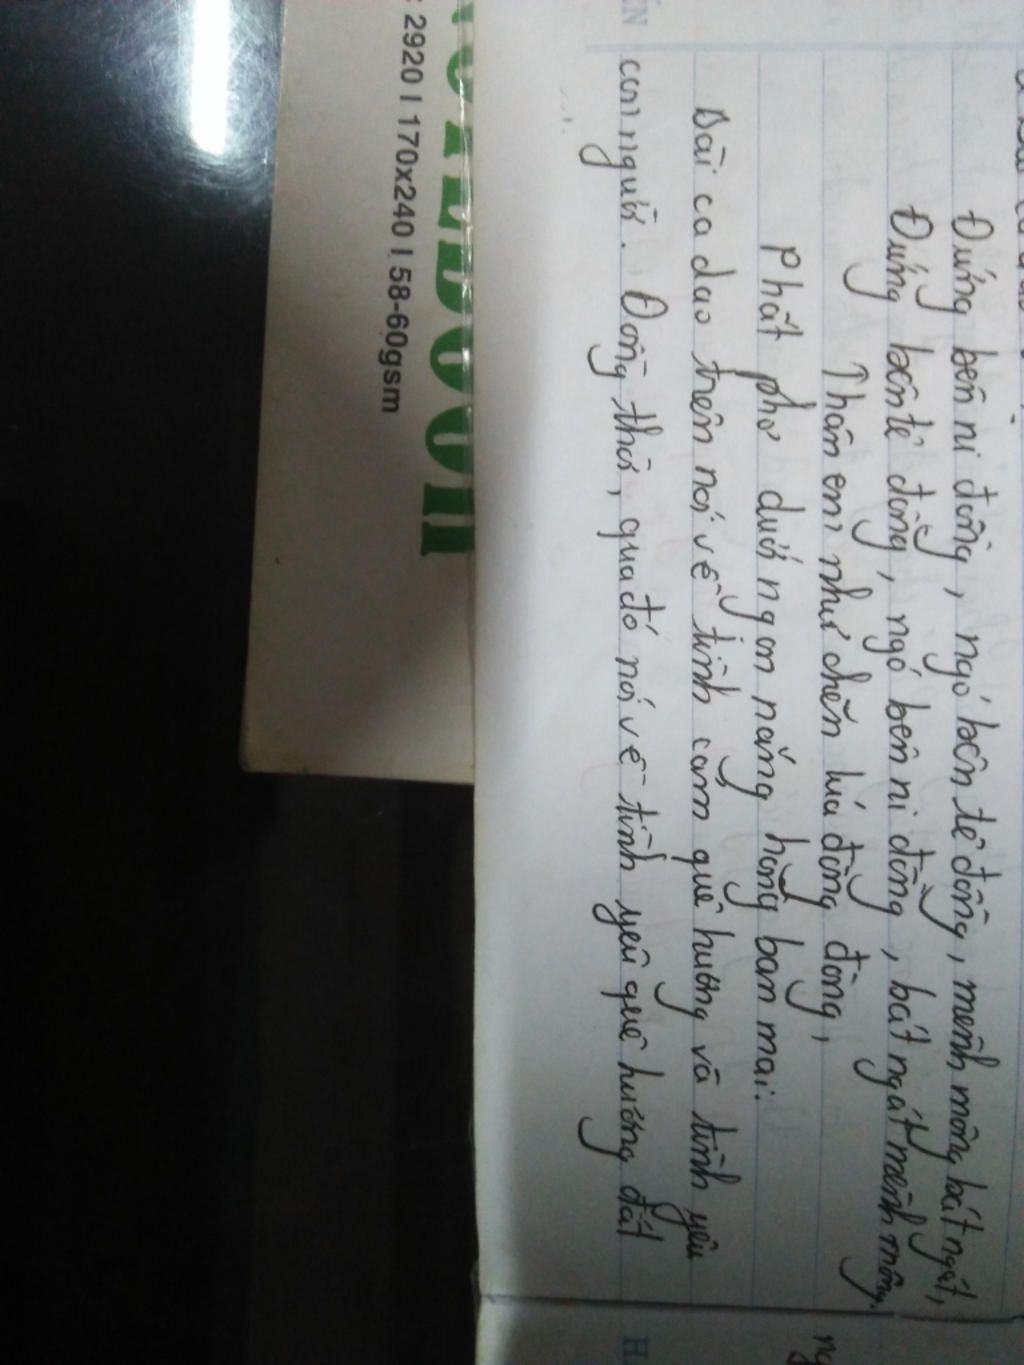 Đứng bên ni đồng, ngó bên tê đồng, mênh mông bát ngát,
Đứng bên tê đồng, ngó bên ni đồng, bát ngát mênh mông.
Thân em như chẽn lúa đòng đòng,
Phất phơ dưới ngọn nắng hồng ban mai.
Bài ca dao trên nói về tình cảm quê hương và tình yêu
con người. Đồng thời, qua đó nói về tình yêu quê hương đất
2920 I 170x240 I 58-60gsm